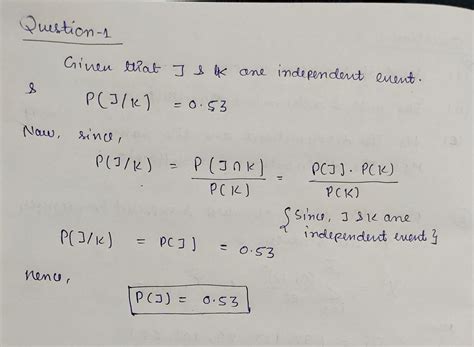 Question-1
Given that J & K are independent event.
& P(J/K) = 0.53
Now, since,
P(J/K) = P(J∩K)/P(K) = P(J). P(K)/P(K)
{Since, J & K are independent event}
P(J/K) = P(J) = 0.53
Hence,
P(J) = 0.53